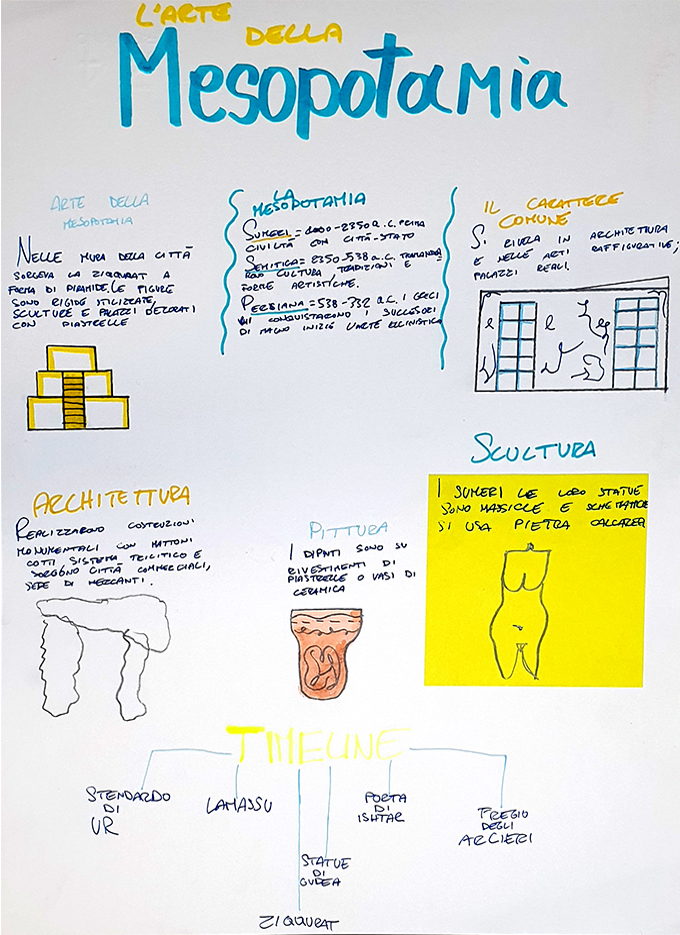 L'ARTE
DELLA
MESOPOTAMIA
ARTE DELLA
MESOPOTAMIA
NELLE MURA DELLA CITTÀ
SORGEVA LA ZIQQURAT A
FORMA DI PIRAMIDE, LE FIGURE
SONO RIGIDE STILIZZATE,
SCULTURE E PALAZZI DECORATI
CON PIASTRELLE
LA
MESOPOTAMIA
SUMERI = 4000-2350 a.C. PRIMA
CIVILTÀ CON CITTÀ-STATO
SEMITICA = 2350-538 a.C. TRAMANDA
RONO CULTURA, TRADIZIONI E
FORME ARTISTICHE.
PERSIANA = 538-332 a.C. I GRECI
CONQUISTARONO I SUCCESSORI
DI MAGNO INIZIO L'ARTE ELLENISTICA
IL CARATTERE
COMUNE
SI RIVELA IN ARCHITETTURA
E NELLE ARTI RAFFIGURATIVE;
PALAZZI REALI.
ARCHITETTURA
REALIZZARONO COSTRUZIONI
MONUMENTALI CON MATTONI
COTTI SISTEMA TRILITICO E
CITTÀ COMMERCIALI,
SEDE DI MERCANTI.
PITTURA
I DIPINTI SONO SU
RIVESTIMENTI DI
PIASTRELLE O VASI DI
CERAMICA
SCULTURA
I SUMERI LE LORO STATUE
SONO MASSICCE E SCHEMATICHE
SI USA PIETRA CALCAREA
TIMELINE
STENDARDO
DI
UR
LAMASSU
PORTA
DI
ISHTAR
FREGIO
DEGLI
ARCIERI
STATUE
DI
GUDEA
ZIQQURAT